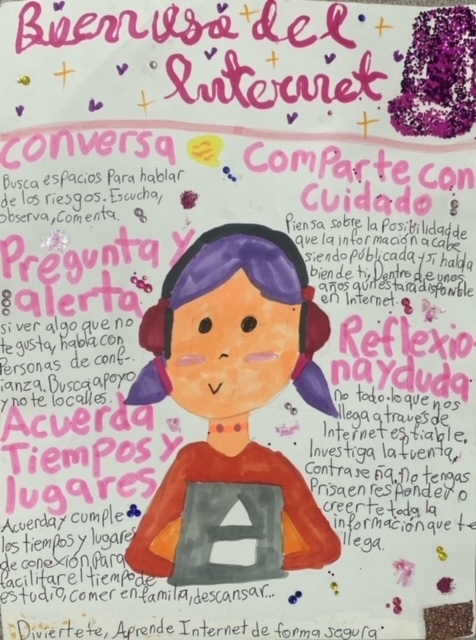 Buen uso del
Internet
Conversa
Busca espacios Para hablar
de los riesgos. Escucha,
observa, Comenta.
Pregunta y
alerta
si ver algo que no
te gusta, habla con
Personas de conf-
ianza. Busca apoyo
y no te localles.
Acuerda
Tiempos y
lugares
Acuerda y cumple
los tiempos y lugares
de conexión, Para
facilitar el tiempo de
estudio, comer en familia, descansar...
Comparte con
Cuidado
Piensa sobre la Posibilidad de
que la información acabe
siendo publicada y si habla
bien de ti. Dentro de unos
años aún estara disponible
en Internet.
Reflexio-
na y duda
No todo lo que nos
llega a través de
Internet es fiable.
Investiga la fuente,
Contraseña. no tengas
Prisa en responder o
creerte toda la
información que te
llega.
Diviertete, Aprende Internet de forma segura.